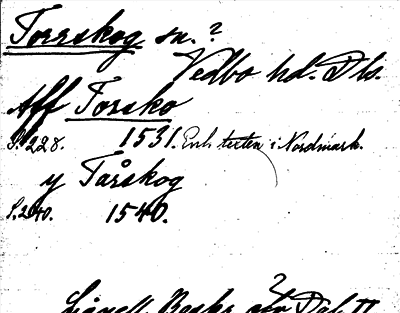 Torrskog sn.?
Vedbo hd. Dls.
Aff Torsko
S. 228. 1531. Enl. texten i Nordmark.
y Tårskog
S. 240. 1540.
Lignell, Beskr. Dal II